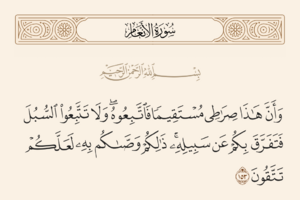 سُورَةُ الأَنْعَامِ
بِسْمِ اللَّهِ الرَّحْمَنِ الرَّحِيمِ
وَأَنَّ هَٰذَا صِرَٰطِى مُسْتَقِيمًا فَٱتَّبِعُوهُ ۖ وَلَا تَتَّبِعُوا۟ ٱلسُّبُلَ
فَتَفَرَّقَ بِكُمْ عَن سَبِيلِهِۦ ۚ ذَٰلِكُمْ وَصَّىٰكُم بِهِۦ لَعَلَّكُمْ
تَتَّقُونَ ١٥٣